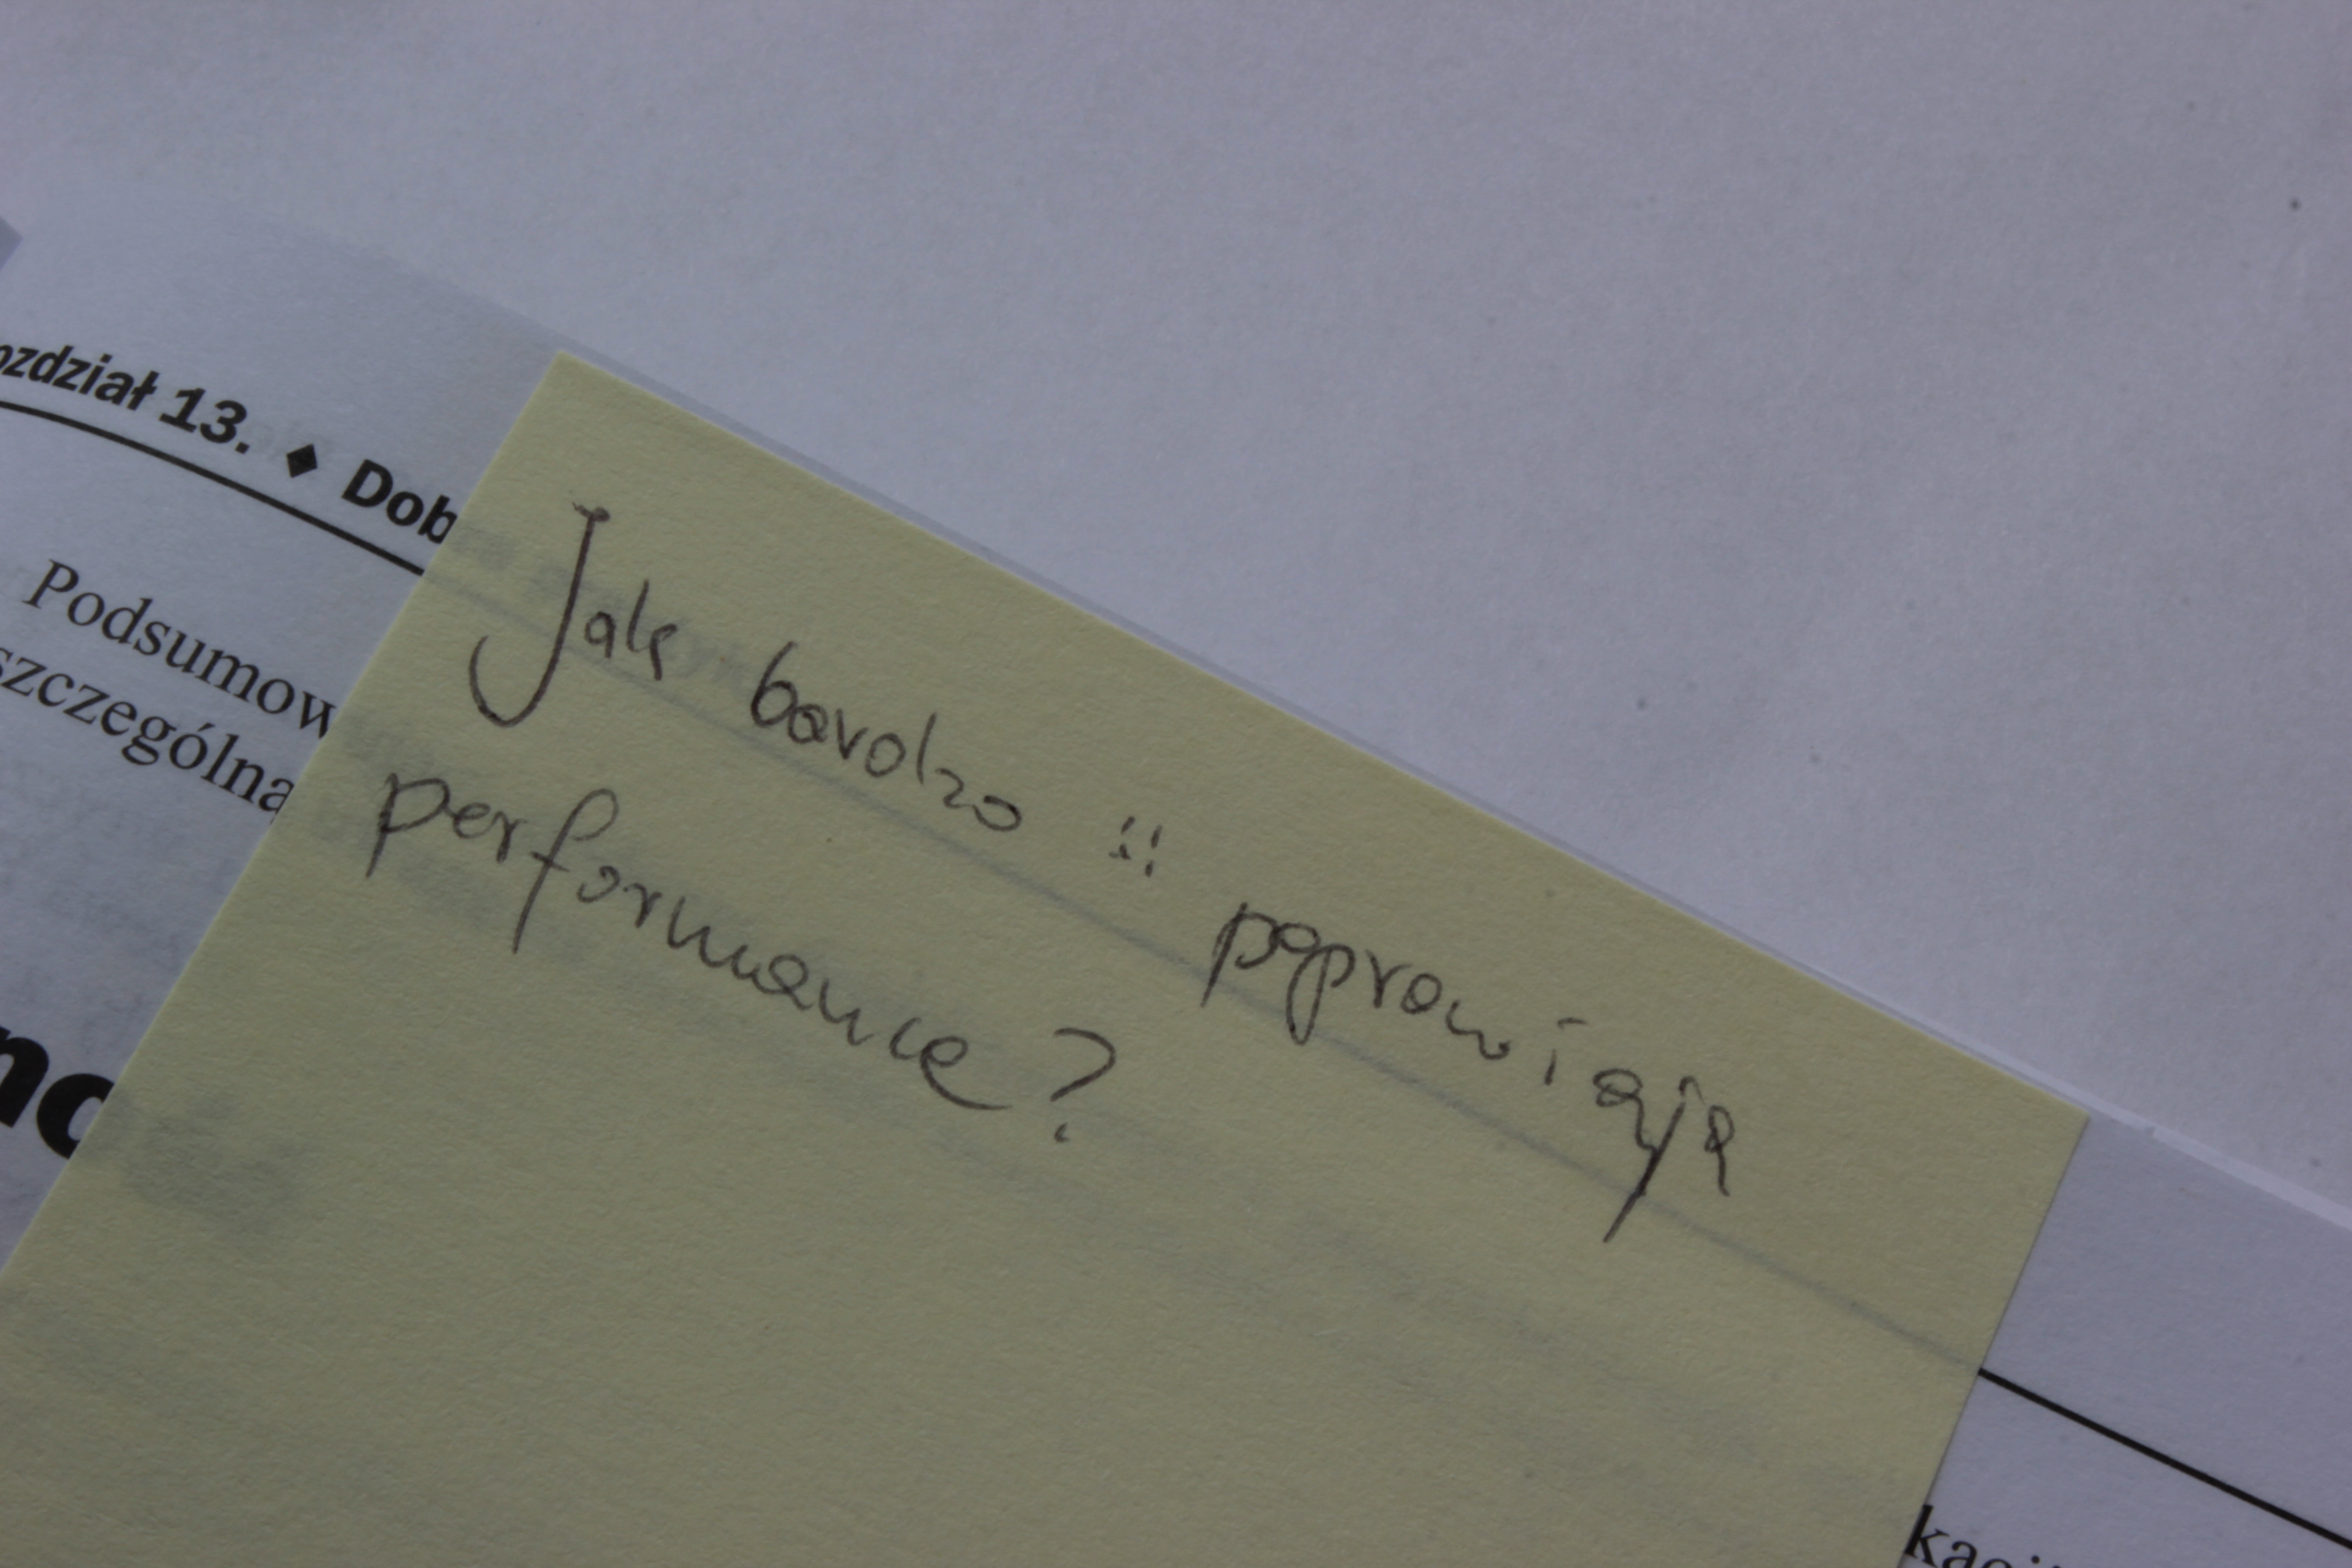 ozdział 13. ◆ Dob
Podsumow
szczególna
Jak bardzo :: poprawiają
performance?
no